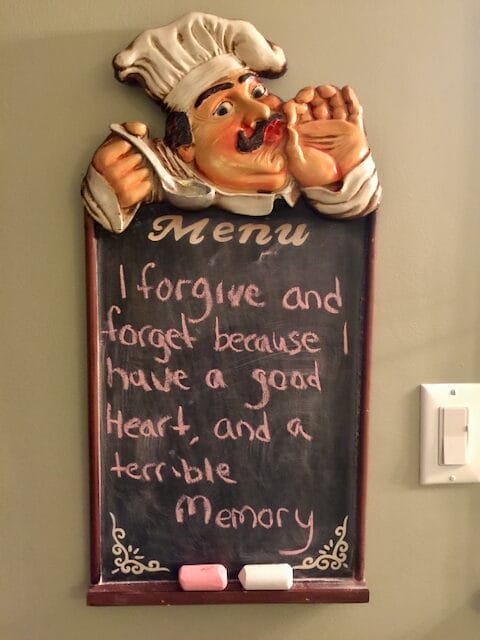 Menu
I forgive and
forget because I
have a good
Heart, and a
terrible
Memory